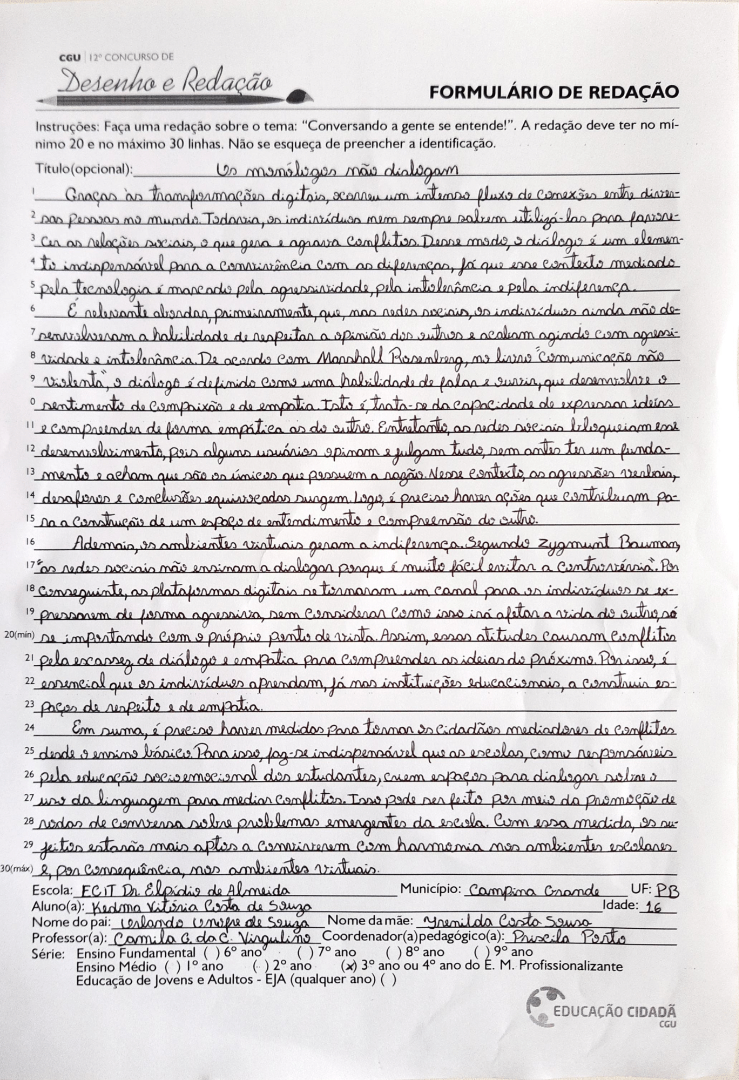 CGU | 12º CONCURSO DE
Desenho e Redação
FORMULÁRIO DE REDAÇÃO
Instruções: Faça uma redação sobre o tema: “Conversando a gente se entende!”. A redação deve ter no mí-
nimo 20 e no máximo 30 linhas. Não se esqueça de preencher a identificação.
Título(opcional): Os monólogos não dialogam
1 Graças às transformações digitais, ocorreu um intenso fluxo de conexões entre diver-
2 sas pessoas no mundo. Todavia, os indivíduos nem sempre sabem utilizá-las para favore-
3 cer as relações sociais, o que gera e agrava conflitos. Desse modo, o diálogo é um elemen-
4 to indispensável para a convivência com as diferenças, já que esse contexto mediado
5 pela tecnologia é marcado pela agressividade, pela intolerância e pela indiferença.
6 É relevante abordar, primeiramente, que, nas redes sociais, os indivíduos ainda não de-
7 senvolveram a habilidade de respeitar a opinião dos outros e acabam agindo com agressi-
8 vidade e intolerância. De acordo com Marshall Rosenberg, no livro "Comunicação não
9 violenta", o diálogo é definido como uma habilidade de falar e ouvir, que desenvolve o
0 sentimento de compaixão e de empatia. Isto é, trata-se da capacidade de expressar ideias
11 e compreender de forma empática as do outro. Entretanto, as redes sociais bloqueiam esse
12 desenvolvimento, pois alguns usuários opinam e julgam tudo, sem antes ter um funda-
13 mento e acham que são os únicos que possuem a razão. Nesse contexto, as agressões verbais,
14 desaforos e conclusões equivocadas surgem. Logo, é preciso haver ações que contribuam pa-
15 ra a construção de um espaço de entendimento e compreensão do outro.
16 Ademais, os ambientes virtuais geram a indiferença. Segundo Zygmunt Bauman,
17 "as redes sociais não ensinam a dialogar porque é muito fácil evitar a controvérsia". Por
18 conseguinte, as plataformas digitais se tornaram um canal para os indivíduos se ex-
19 pressarem de forma agressiva, sem considerar como isso irá afetar a vida do outro, só
20(min) se importando com o próprio ponto de vista. Assim, essas atitudes causam conflitos
21 pela escassez de diálogo e empatia para compreender as ideias do próximo. Por isso, é
22 essencial que os indivíduos aprendam, já nas instituições educacionais, a construir es-
23 paços de respeito e de empatia.
24 Em suma, é preciso haver medidas para tornar os cidadãos mediadores de conflitos
25 desde o ensino básico. Para isso, faz-se indispensável que as escolas, como responsáveis
26 pela educação socioemocional dos estudantes, criem espaços para dialogar sobre o
27 uso da linguagem para mediar conflitos. Isso pode ser feito por meio da promoção de
28 rodas de conversa sobre problemas emergentes da escola. Com essa medida, os su-
29 jeitos estarão mais aptos a conviverem com harmonia nos ambientes escolares
30(máx) e, por consequência, nos ambientes virtuais.
Escola: ECIT Dr. Elpídio de Almeida Município: Campina Grande UF: PB
Aluno(a): Kedma Vitória Costa de Souza Idade: 16
Nome do pai: Orlando Onofre de Souza Nome da mãe: Yrenilda Costa Sousa
Professor(a): Camila G. da C. Virgulino Coordenador(a)pedagógico(a): Priscila Porto
Série: Ensino Fundamental ( ) 6º ano ( ) 7º ano ( ) 8º ano ( ) 9º ano
Ensino Médio ( ) 1º ano ( ) 2º ano (x) 3º ano ou 4º ano do E. M. Profissionalizante
Educação de Jovens e Adultos - EJA (qualquer ano) ( )
EDUCAÇÃO CIDADÃ
CGU